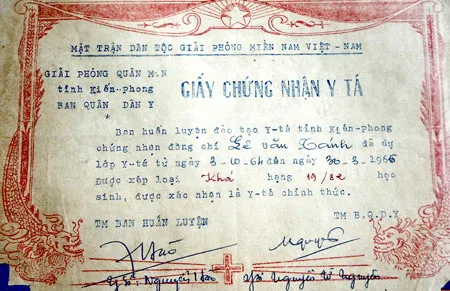 MẶT TRẬN DÂN TỘC GIẢI PHÓNG MIỀN NAM VIỆT-NAM
GIẢI PHÓNG QUÂN M-N
tỉnh Kiến-phong
BAN QUÂN DÂN Y
GIẤY CHỨNG NHẬN Y TÁ
Ban huấn luyện đào tạo Y-tá tỉnh Kiến-phong
chứng nhận đồng chí Lê Văn Hánh đã dự
lớp Y-tá từ ngày 3-10-64 đến ngày 30-3-1965
Được xếp loại Khá hạng 19/82 học
sinh, được xác nhận là Y-tá chính thức.
TM BAN HUẤN LUYỆN
TM B.Q.D.Y
Y Sĩ: Nguyễn Hảo
Nguyễn